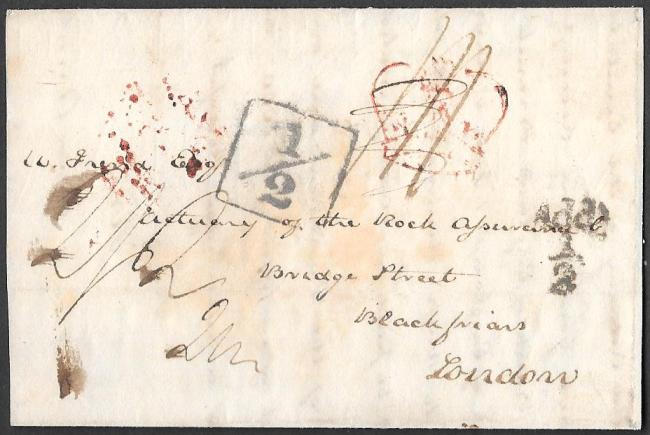 1/2
W. Frend Esq
Actuary of the Rock Assurance C
Bridge Street
Blackfriars
London
Addl
1/2